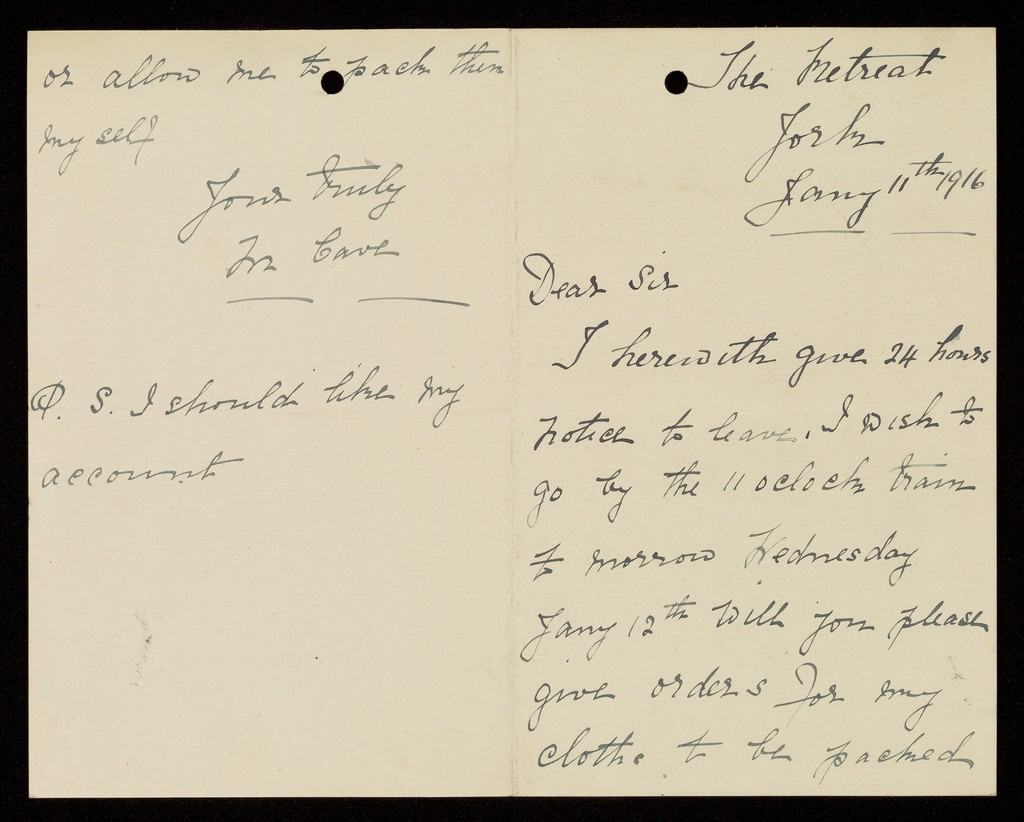 The Retreat
York
Jany 11th 1916
Dear Sir
I herewith give 24 hours
notice to leave, I wish to
go by the 11 oclock train
to morrow Wednesday
Jany 12th Will you please
give orders for my
clothe to be packed
or allow me to pack them
my self
Yours truly
Cave
P. S. I should like my
account